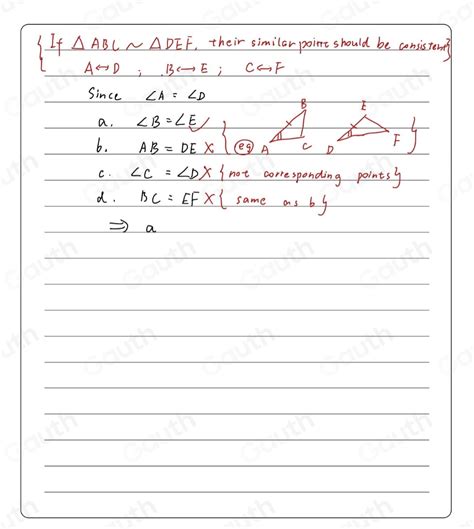 { If △ABC ~ △DEF, their similar points should be consistent }
A↔D ; B↔E ; C↔F
Since ∠A = ∠D
a. ∠B = ∠E ✓
b. AB = DE X { eg A B C D E F }
c. ∠C = ∠D X { not corresponding points }
d. BC = EF X { same as b }
⇒ a
Gauth